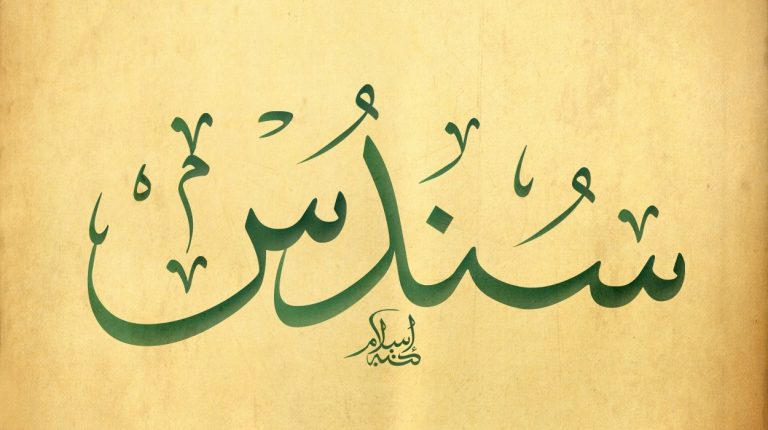 سُندُس
كتبه إسلام